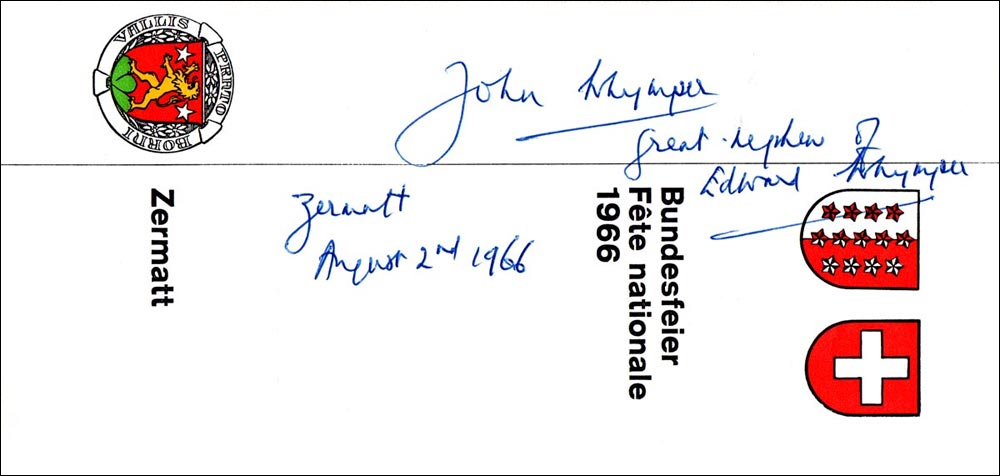 VALLIS
PRATO
BORNI
John Whymper
great-nephew of
Edward Whymper
Zermatt
August 2nd 1966
Bundesfeier
Fête nationale
1966
Zermatt